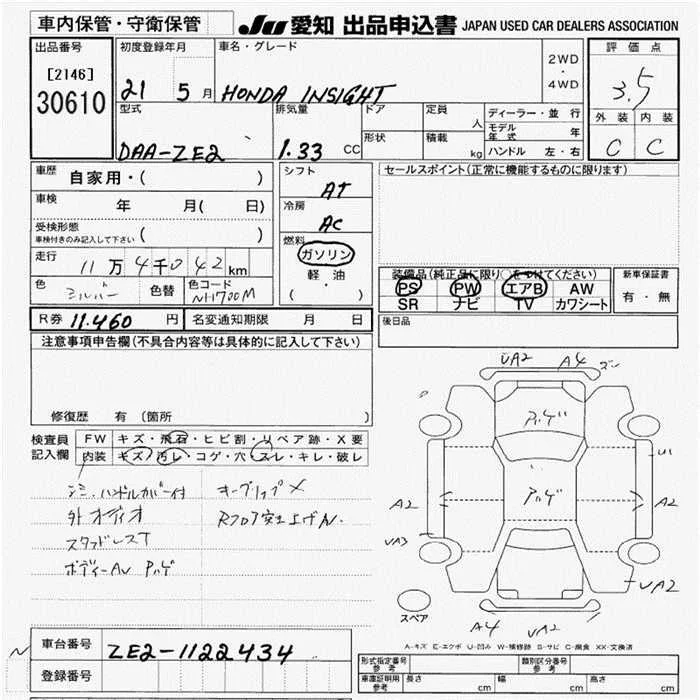 車内保管・守衛保管
JU 愛知 出品申込書 JAPAN USED CAR DEALERS ASSOCIATION
出品番号 初度登録年月 車名・グレード 2WD・4WD 評価点
[2146]
30610 21 5月 HONDA INSIGHT 3.5
型式 排気量 ドア 定員 人 ディーラー・並行 外装 内装
モデル年式 年
DAA-ZE2 1.33 CC 形状 積載 kg ハンドル 左・右 C C
車歴 自家用・( ) シフト AT セールスポイント(正常に機能するものに限ります)
車検 年 月( 日) 冷房 AC
受検形態 ( )
車検付きのみ記入して下さい
燃料 ガソリン
走行 11万4千042km 軽油
( ・ )
装備品(純正品に限り○をつけてください) 新車保証書
色 シルバー 色替 色コード NH700M
PS PW エアB AW 有・無
SR ナビ TV カワシート
R券 11.460円 名変通知期限 月 日 後日品
注意事項申告欄(不具合内容等は具体的に記入して下さい)
修復歴 有 (箇所 )
検査員記入欄 FW キズ・飛石・ヒビ割・リペア跡・X要
内装 キズ・汚レ・コゲ・穴・スレ・キレ・破レ
ハンドルカバー付
外オーディオ
スタッドレスT
UA2 A4
アゲ
アゲ
U1
A2 A2
UA3
UA2
スペア
A4 UA2
A-キズ E-エクボ U-凹み W-補修跡 S-サビ C-腐食 XX-交換済
車台番号 ZE2-1122434
登録番号
型式指定番号 参考 類別区分番号 参考
車庫証明用 参考 長さ cm 幅 cm 高さ cm